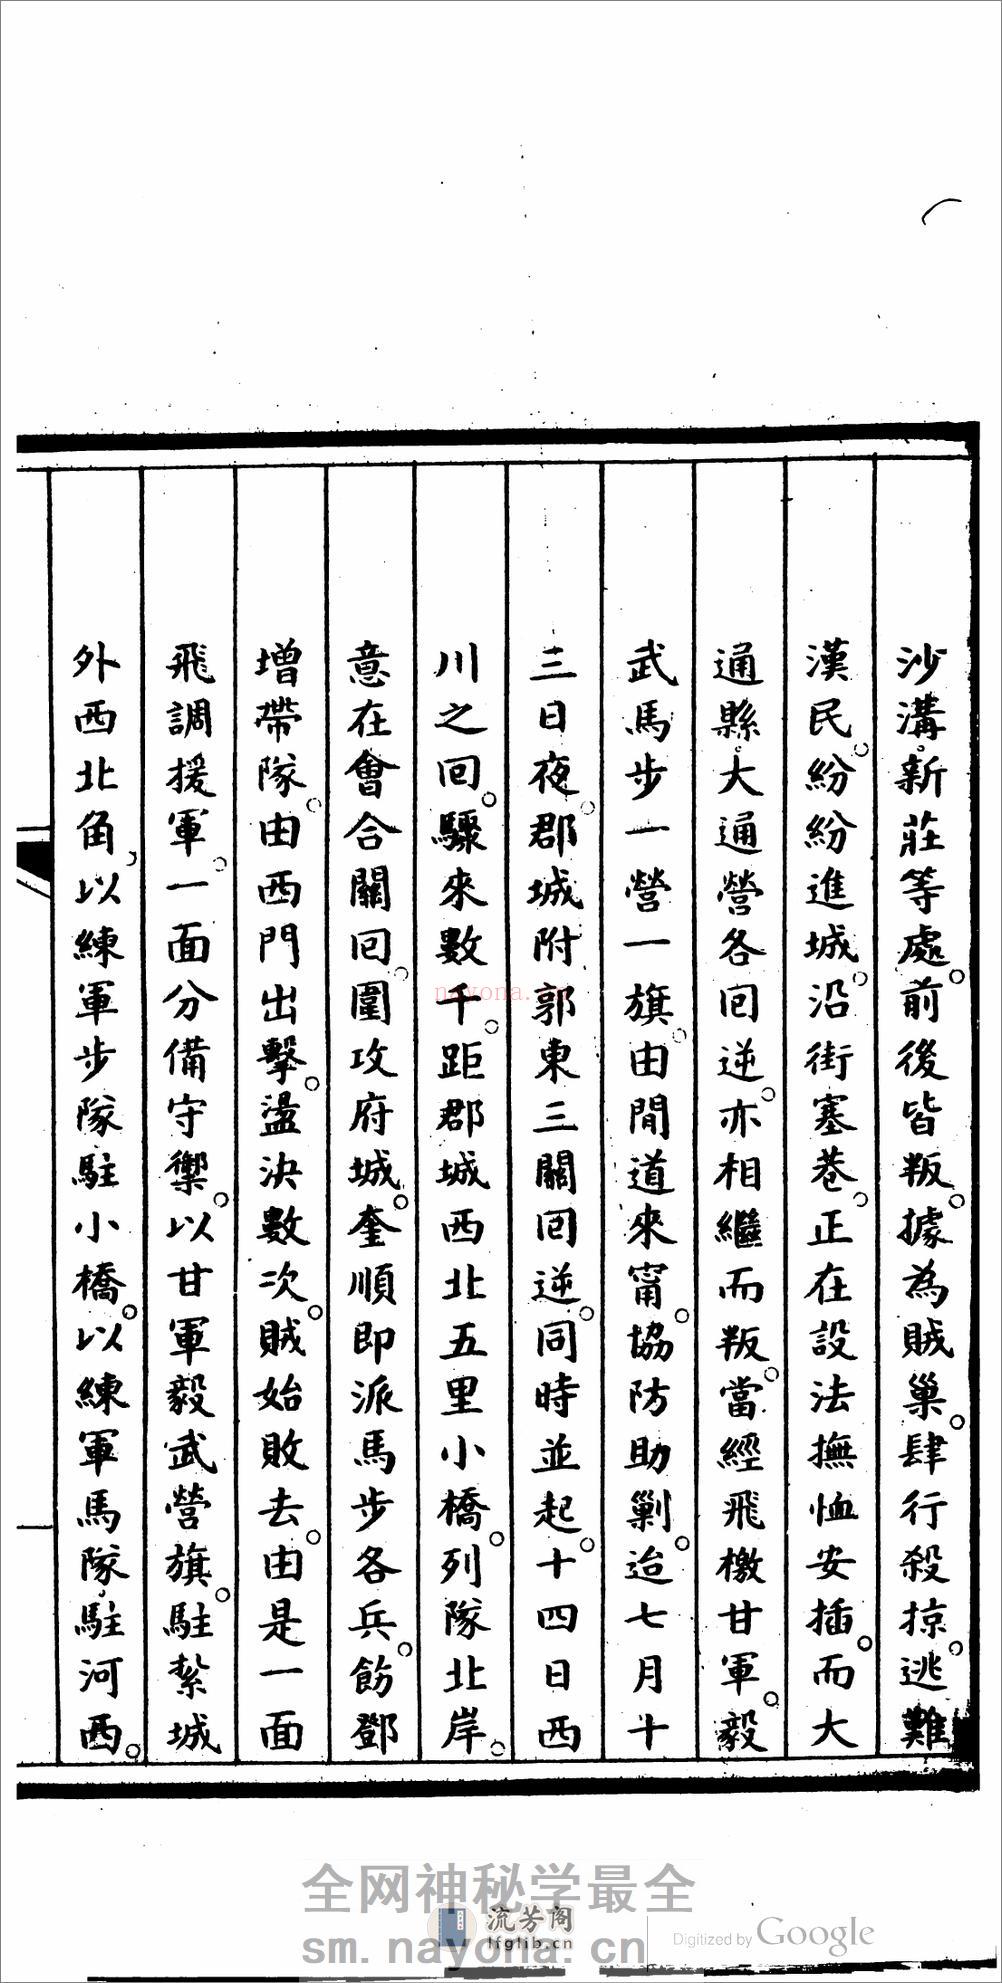 沙溝新莊等處。前後皆叛。據為賊巢。肆行殺掠。逃難
漢民。紛紛進城。沿街塞巷。正在設法撫恤安插。而大
通縣。大通營各回逆。亦相繼而叛。當經飛檄甘軍。毅
武馬步一營一旗。由閒道來甯。協防助剿。迨七月十
三日夜。郡城附郭東三關回逆。同時並起。十四日西
川之回。驟來數千。距郡城西北五里小橋。列隊北岸。
意在會合關回。圍攻府城。奎順即派馬步各兵。飭鄧
增帶隊。由西門出擊。盪決數次。賊始敗去。由是一面
飛調援軍。一面分備守禦。以甘軍毅武營旗。駐紮城
外西北角。以練軍步隊駐小橋。以練軍馬隊。駐河西。
nayona.cn
全网神秘学最全
流芳阁
lfglib.cn
sm.nayona.cn
Digitized by Google